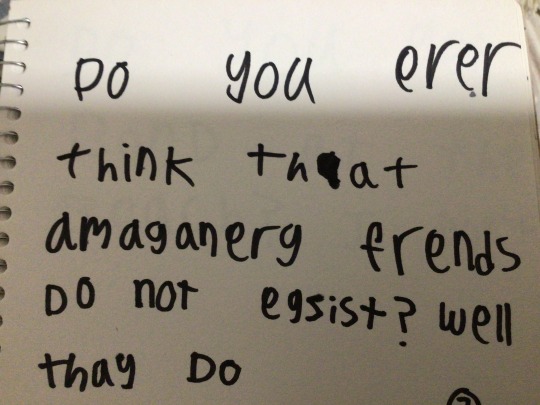 Do you ever
think that
amaganery frends
Do not egsist? well
thay Do